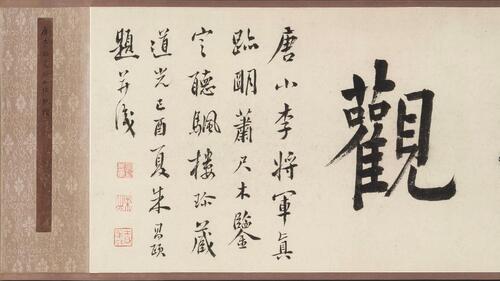 觀
唐小李將軍真
跡明蕭尺木鑒
定聽颿樓珍藏
道光己酉夏朱昌頤
題并識